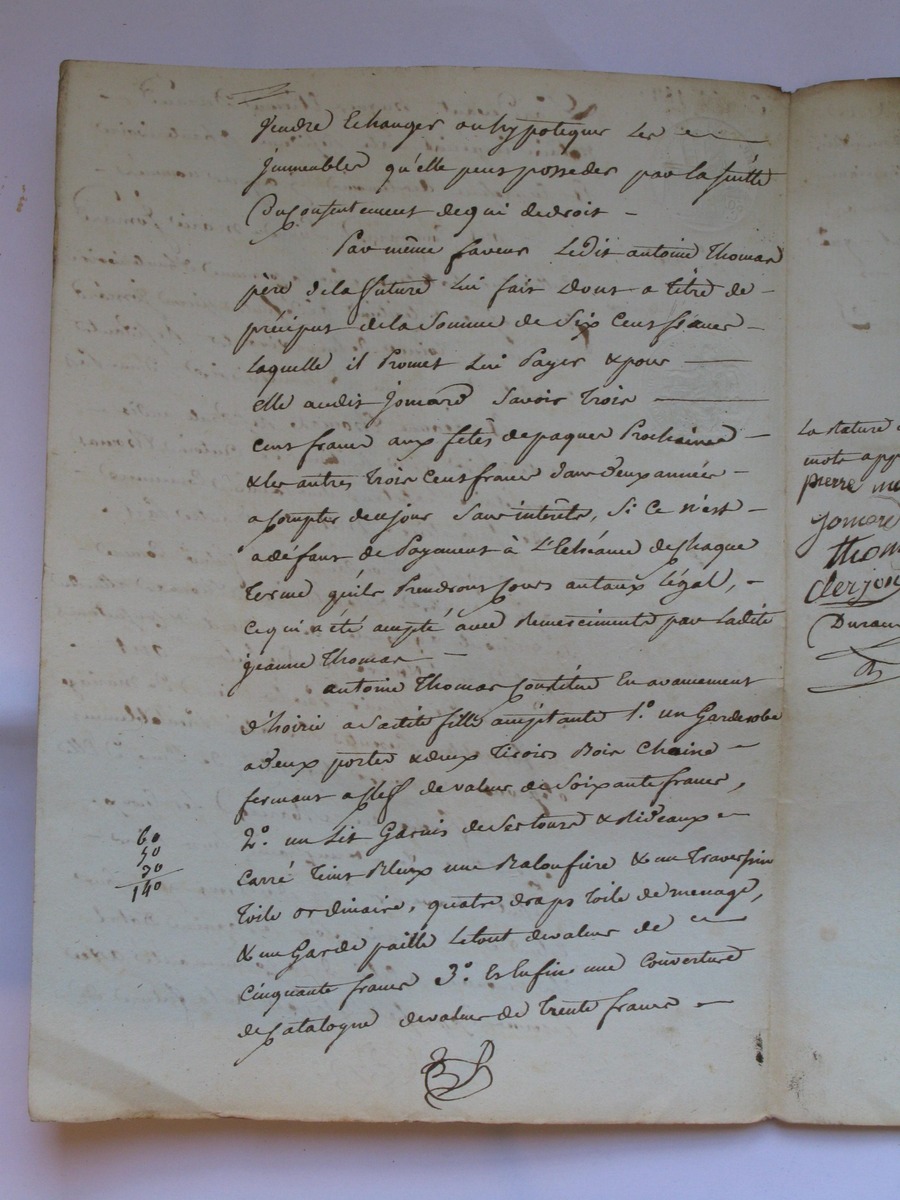 vendre Echanger ou hypotequer Les
Jmmeubles qu'elle peut posseder par la suitte
Du Consentement de qui de droit
Par même faveur Ledit antoine Thomas
père de la future Lui fait Dont a titre de
préciput de la Somme de Six Cent francs
Laquelle il Promet Lui Payer & pour
elle audit Jomard Savoir Trois
Cent franc aux fêtes de paques Prochaines
& les autres Trois Cent franc dans deux années
a Compter de ce jour Sans intérêts, Si Ce n'est
a défaut de Payement à L'Echéance de Chaque
Terme qu'ils Prendront Cours au taux Légal,
Ce qui a été accepté avec Remerciments par Ladite
jeanne Thomas
antoine Thomas Constitue En avancement
d'hoirie a Sadite fille acceptante 1.° un Garderobe
a deux portes & deux Tiroirs Bois Chaine
fermant a Clef de valeur de Soixante francs,
2.° un Lit Garnis de Ses tours & Rideaux
Carré Teint Bleux une & un Traversin
Toile ordinaire, quatre draps Toile de menage,
& un Garde paille Le tout de valeur de
Cinquante francs 3.° Et Enfin une Couverture
de Catalogne de valeur de Trente francs
60
50
30
140
La rature
mots app
pierre
Jomard
Thom
Clerjon
Duran